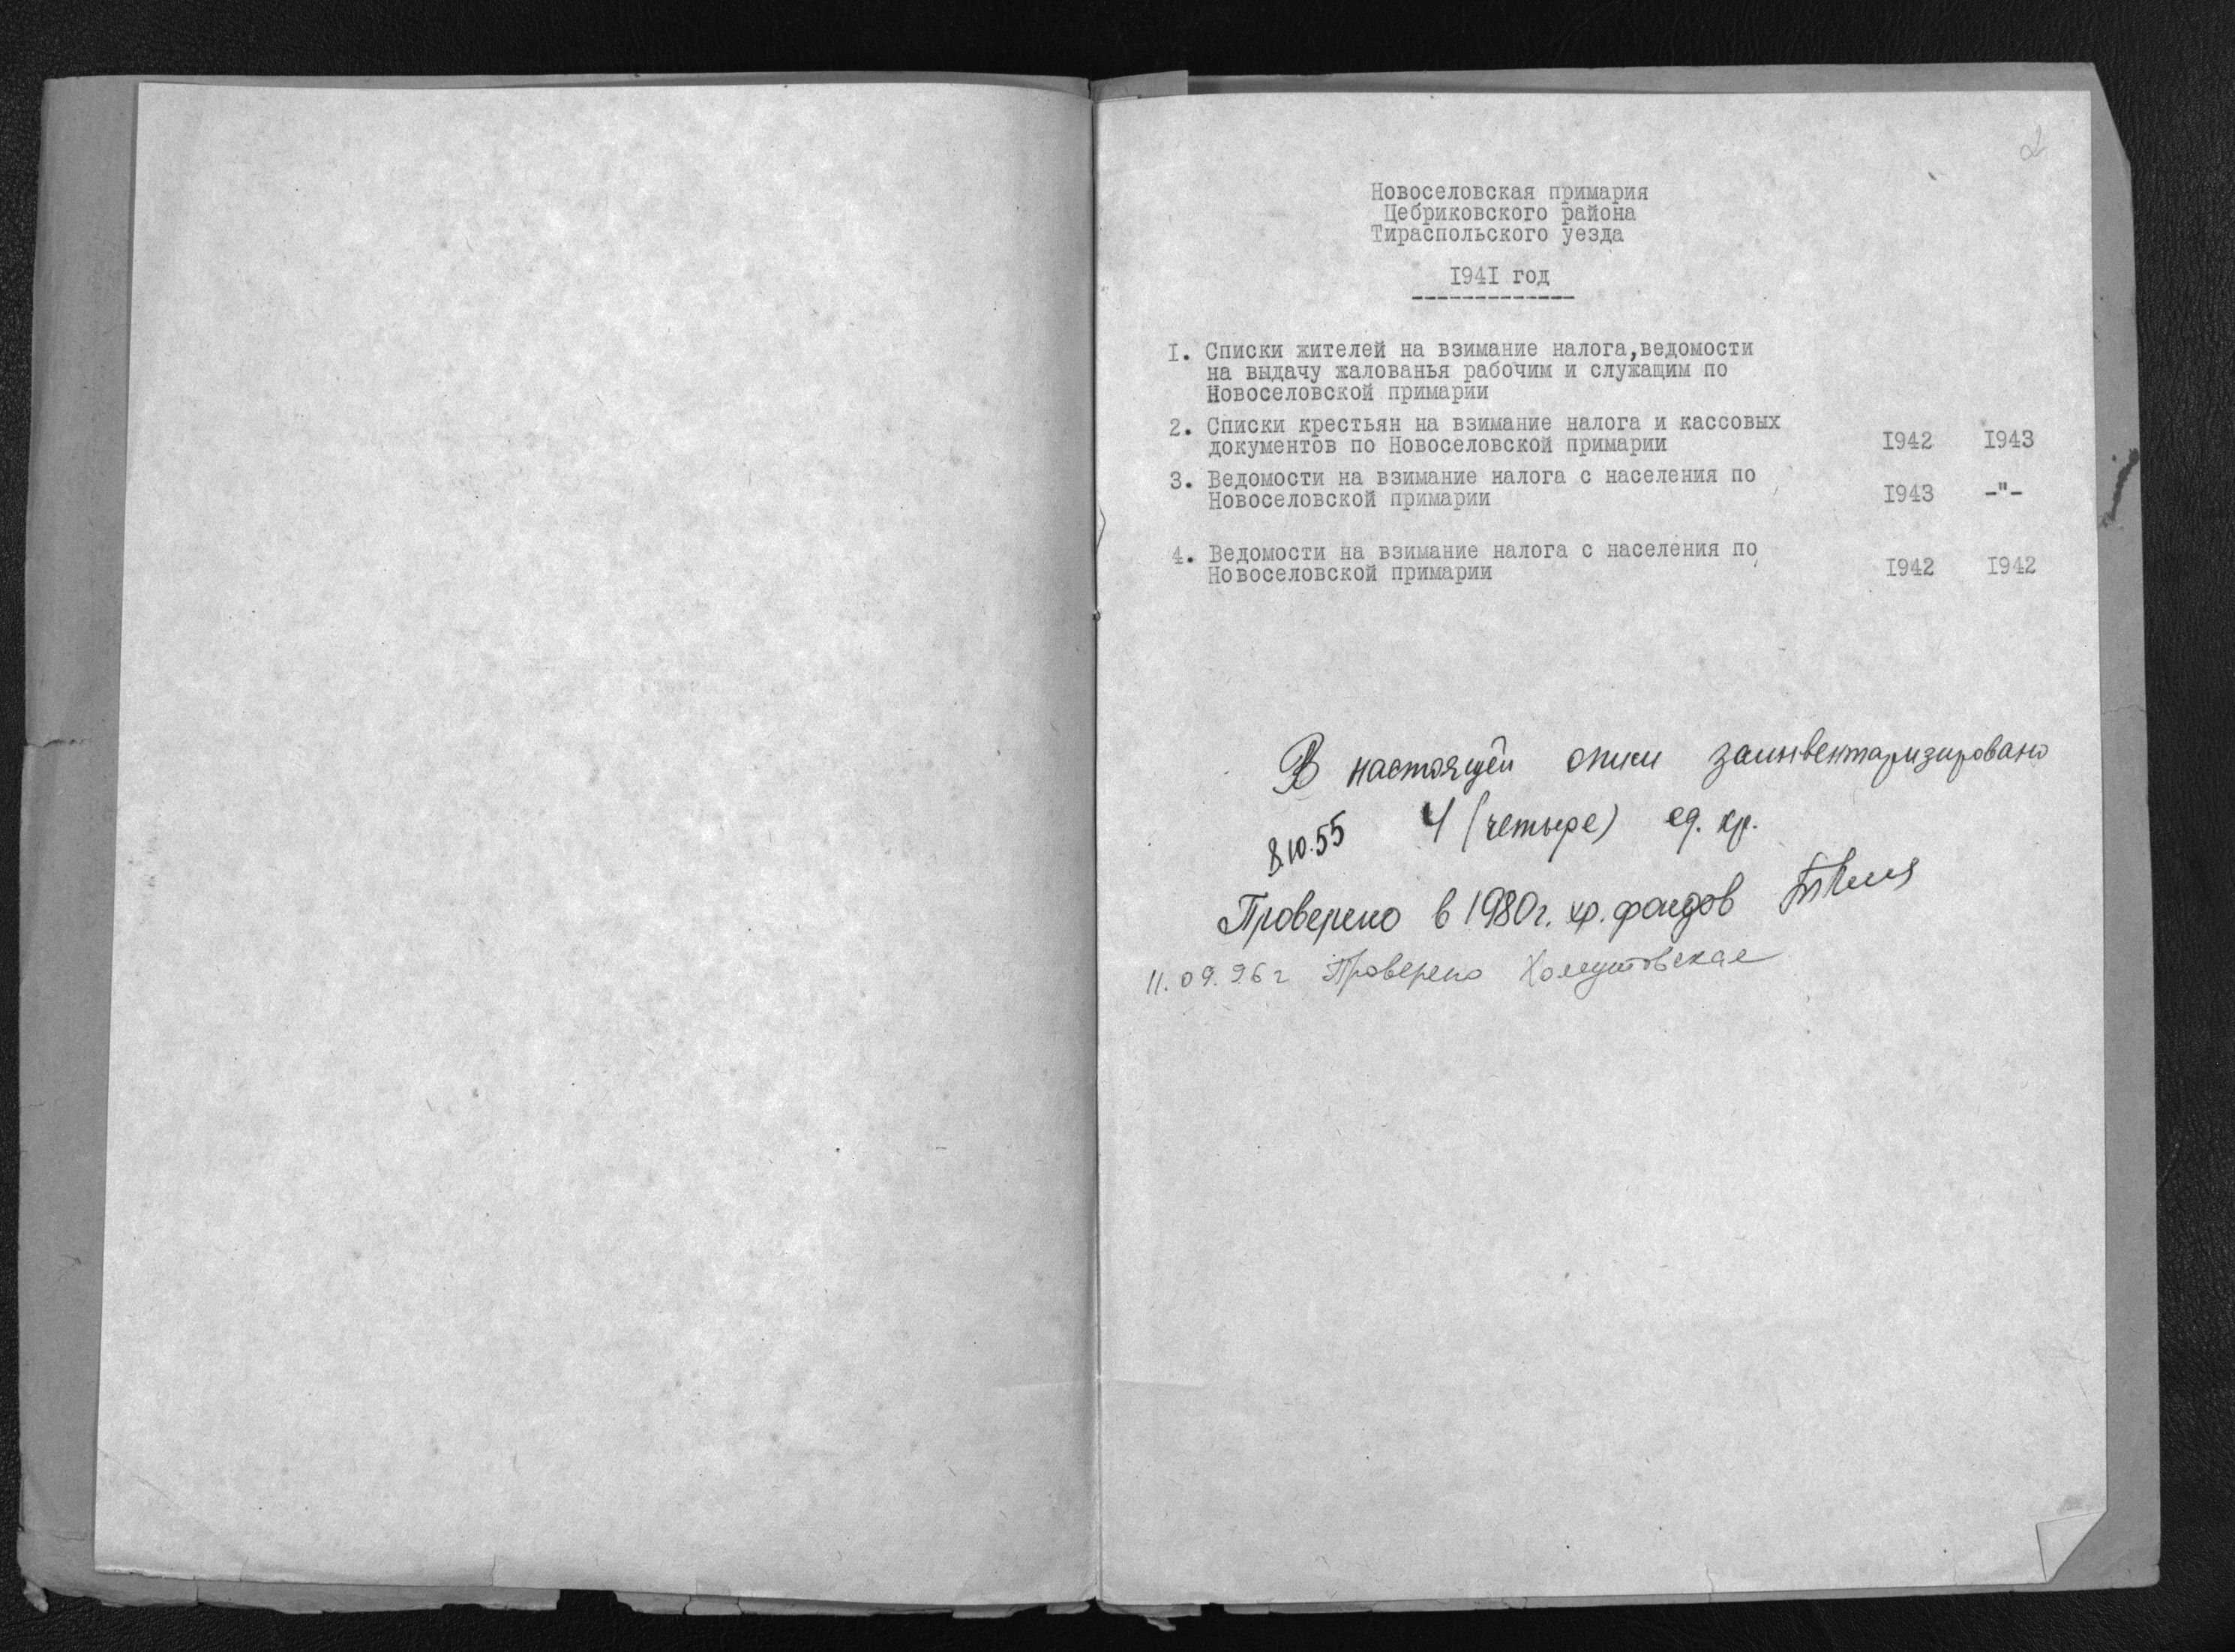 2
Новоселовская примария
Цебриковского района
Тираспольского уезда
I94I год
-------------
I. Списки жителей на взимание налога,ведомости
на выдачу жалованья рабочим и служащим по
Новоселовской примарии
2. Списки крестьян на взимание налога и кассовых
документов по Новоселовской примарии I942 I943
3. Ведомости на взимание налога с населения по
Новоселовской примарии I943 -"-
4. Ведомости на взимание налога с населения по
Новоселовской примарии I942 I942
В настоящей описи заинвентаризировано
8.10.55 4 (четыре) ед. хр.
Проверено в 1980г. хр. фондов
11.09.96г Проверено Хомутовская